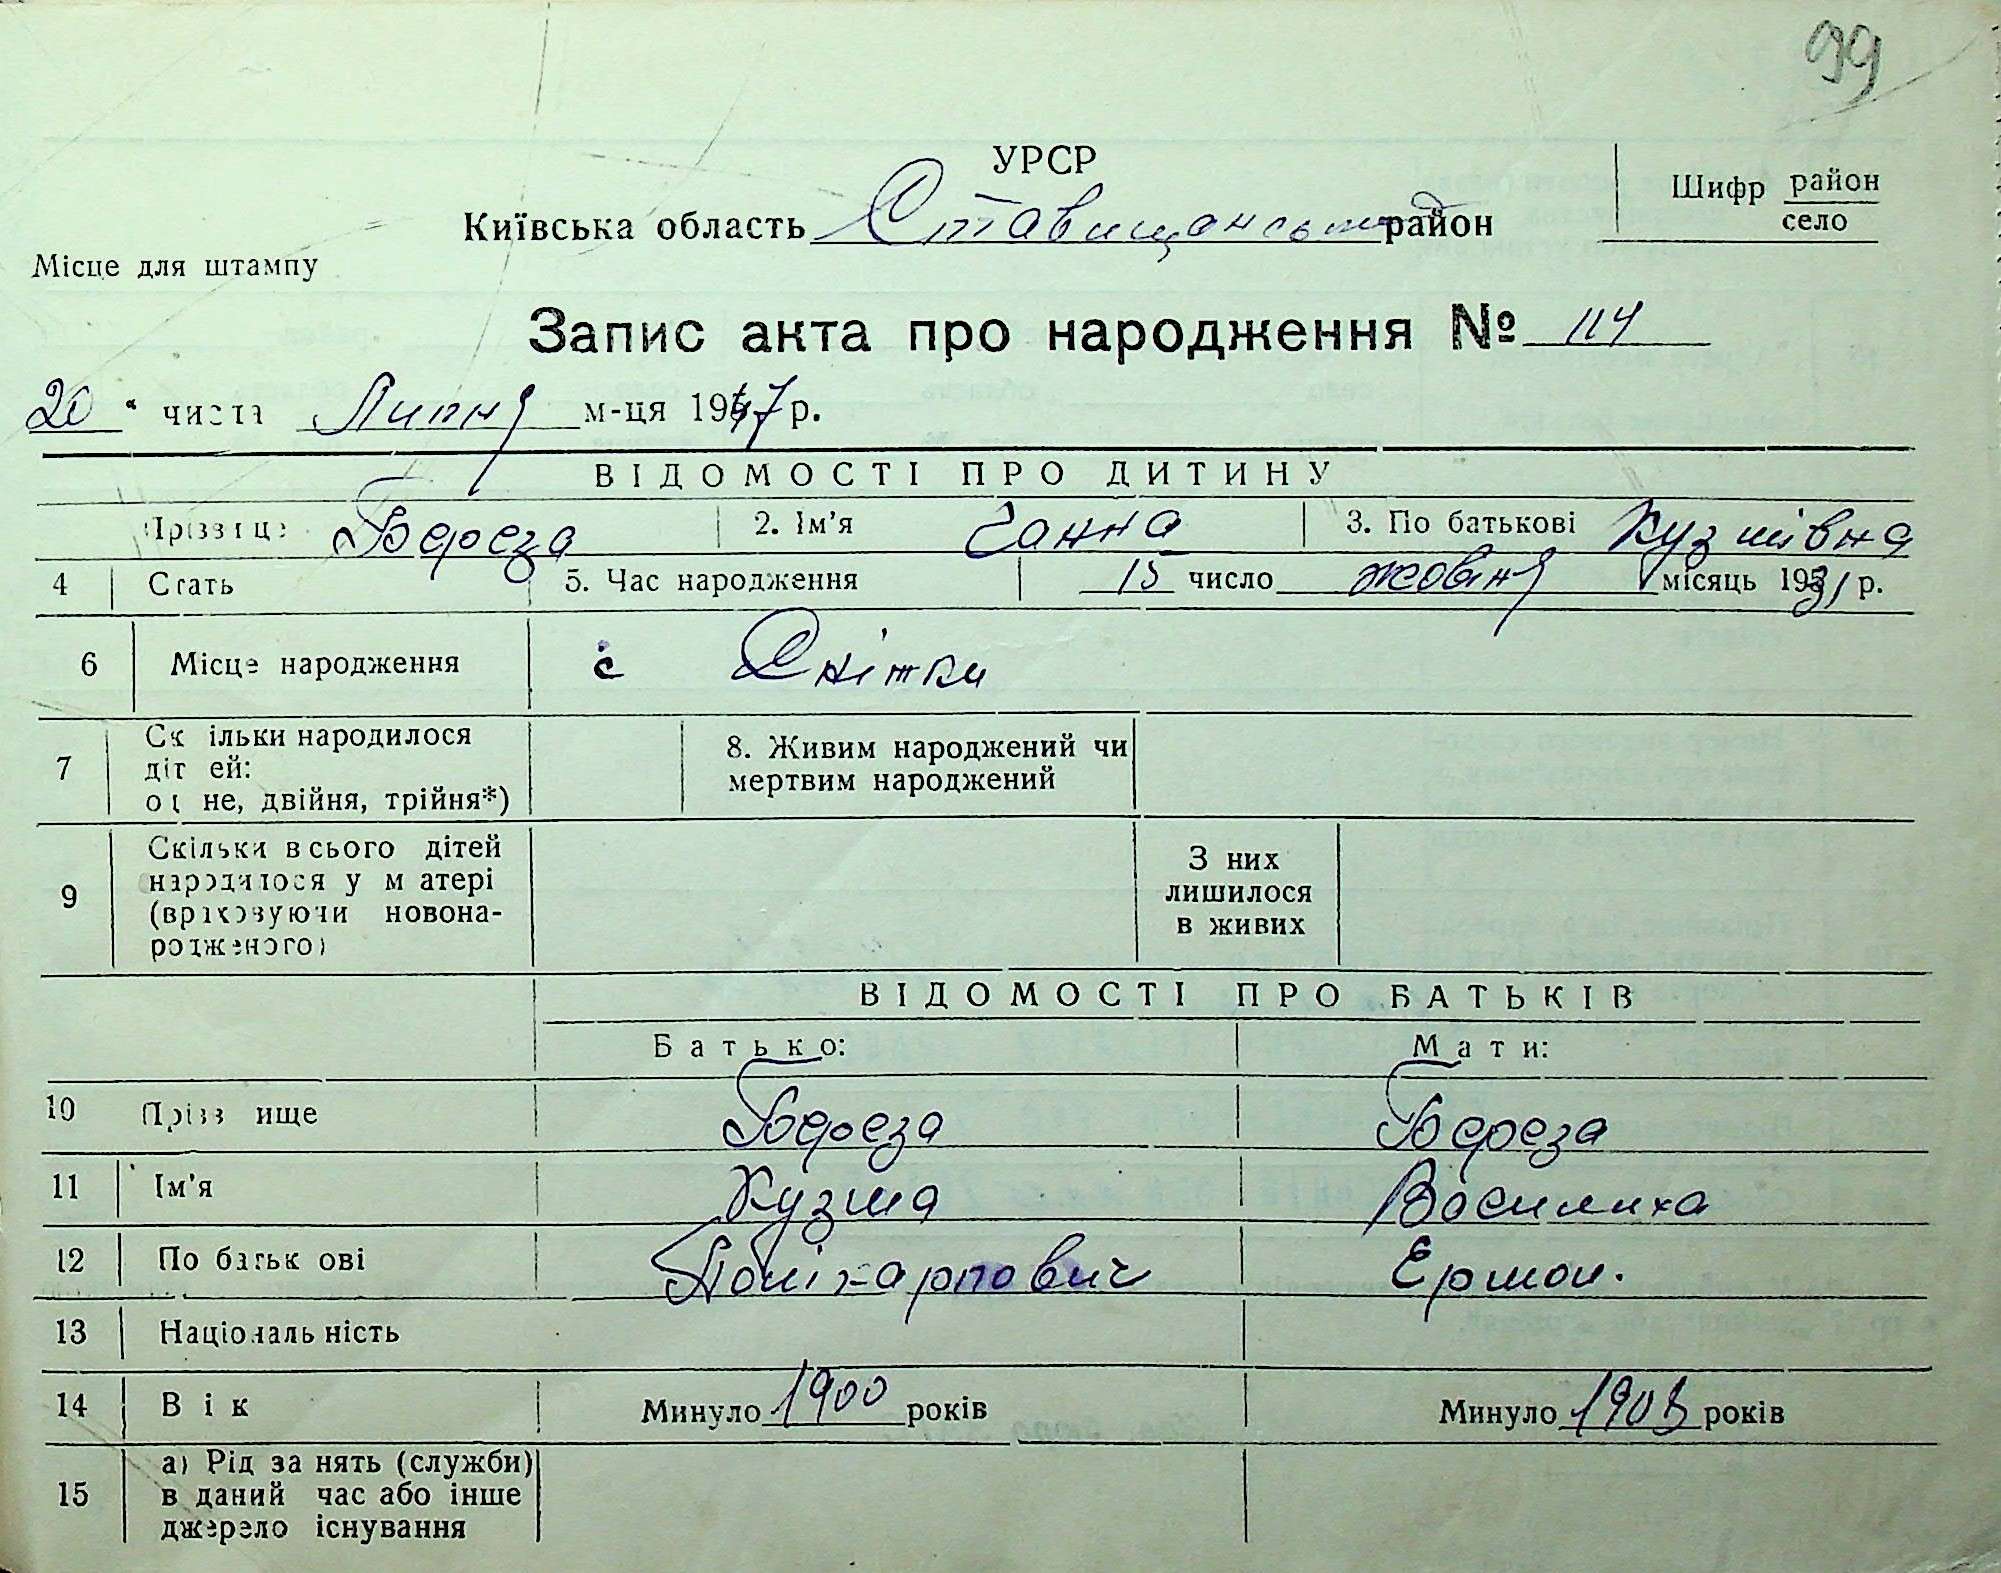 99
УРСР
Київська область Ставищанський район
Шифр район
село
Місце для штампу
Запис акта про народження № 114
20 " числа Липня м-ця 1947 р.
ВІДОМОСТІ ПРО ДИТИНУ
Прізвище Береза 2. Ім'я Ганна 3. По батькові Кузмівна
4 Стать 5. Час народження 15 число жовтня місяць 1931 р.
6 Місце народження с Снітки
7 Скільки народилося
дітей:
одне, двійня, трійня*)
8. Живим народжений чи
мертвим народжений
9 Скільки всього дітей
народилося у матері
(враховуючи новона-
родженого)
З них
лишилося
в живих
ВІДОМОСТІ ПРО БАТЬКІВ
Батько: Мати:
10 Прізвище Береза Береза
11 Ім'я Кузма Василиха
12 По батькові Полікарпович Ермол.
13 Національність
14 Вік Минуло 1900 років Минуло 1908 років
15 а) Рід занять (служби)
в даний час або інше
джерело існування